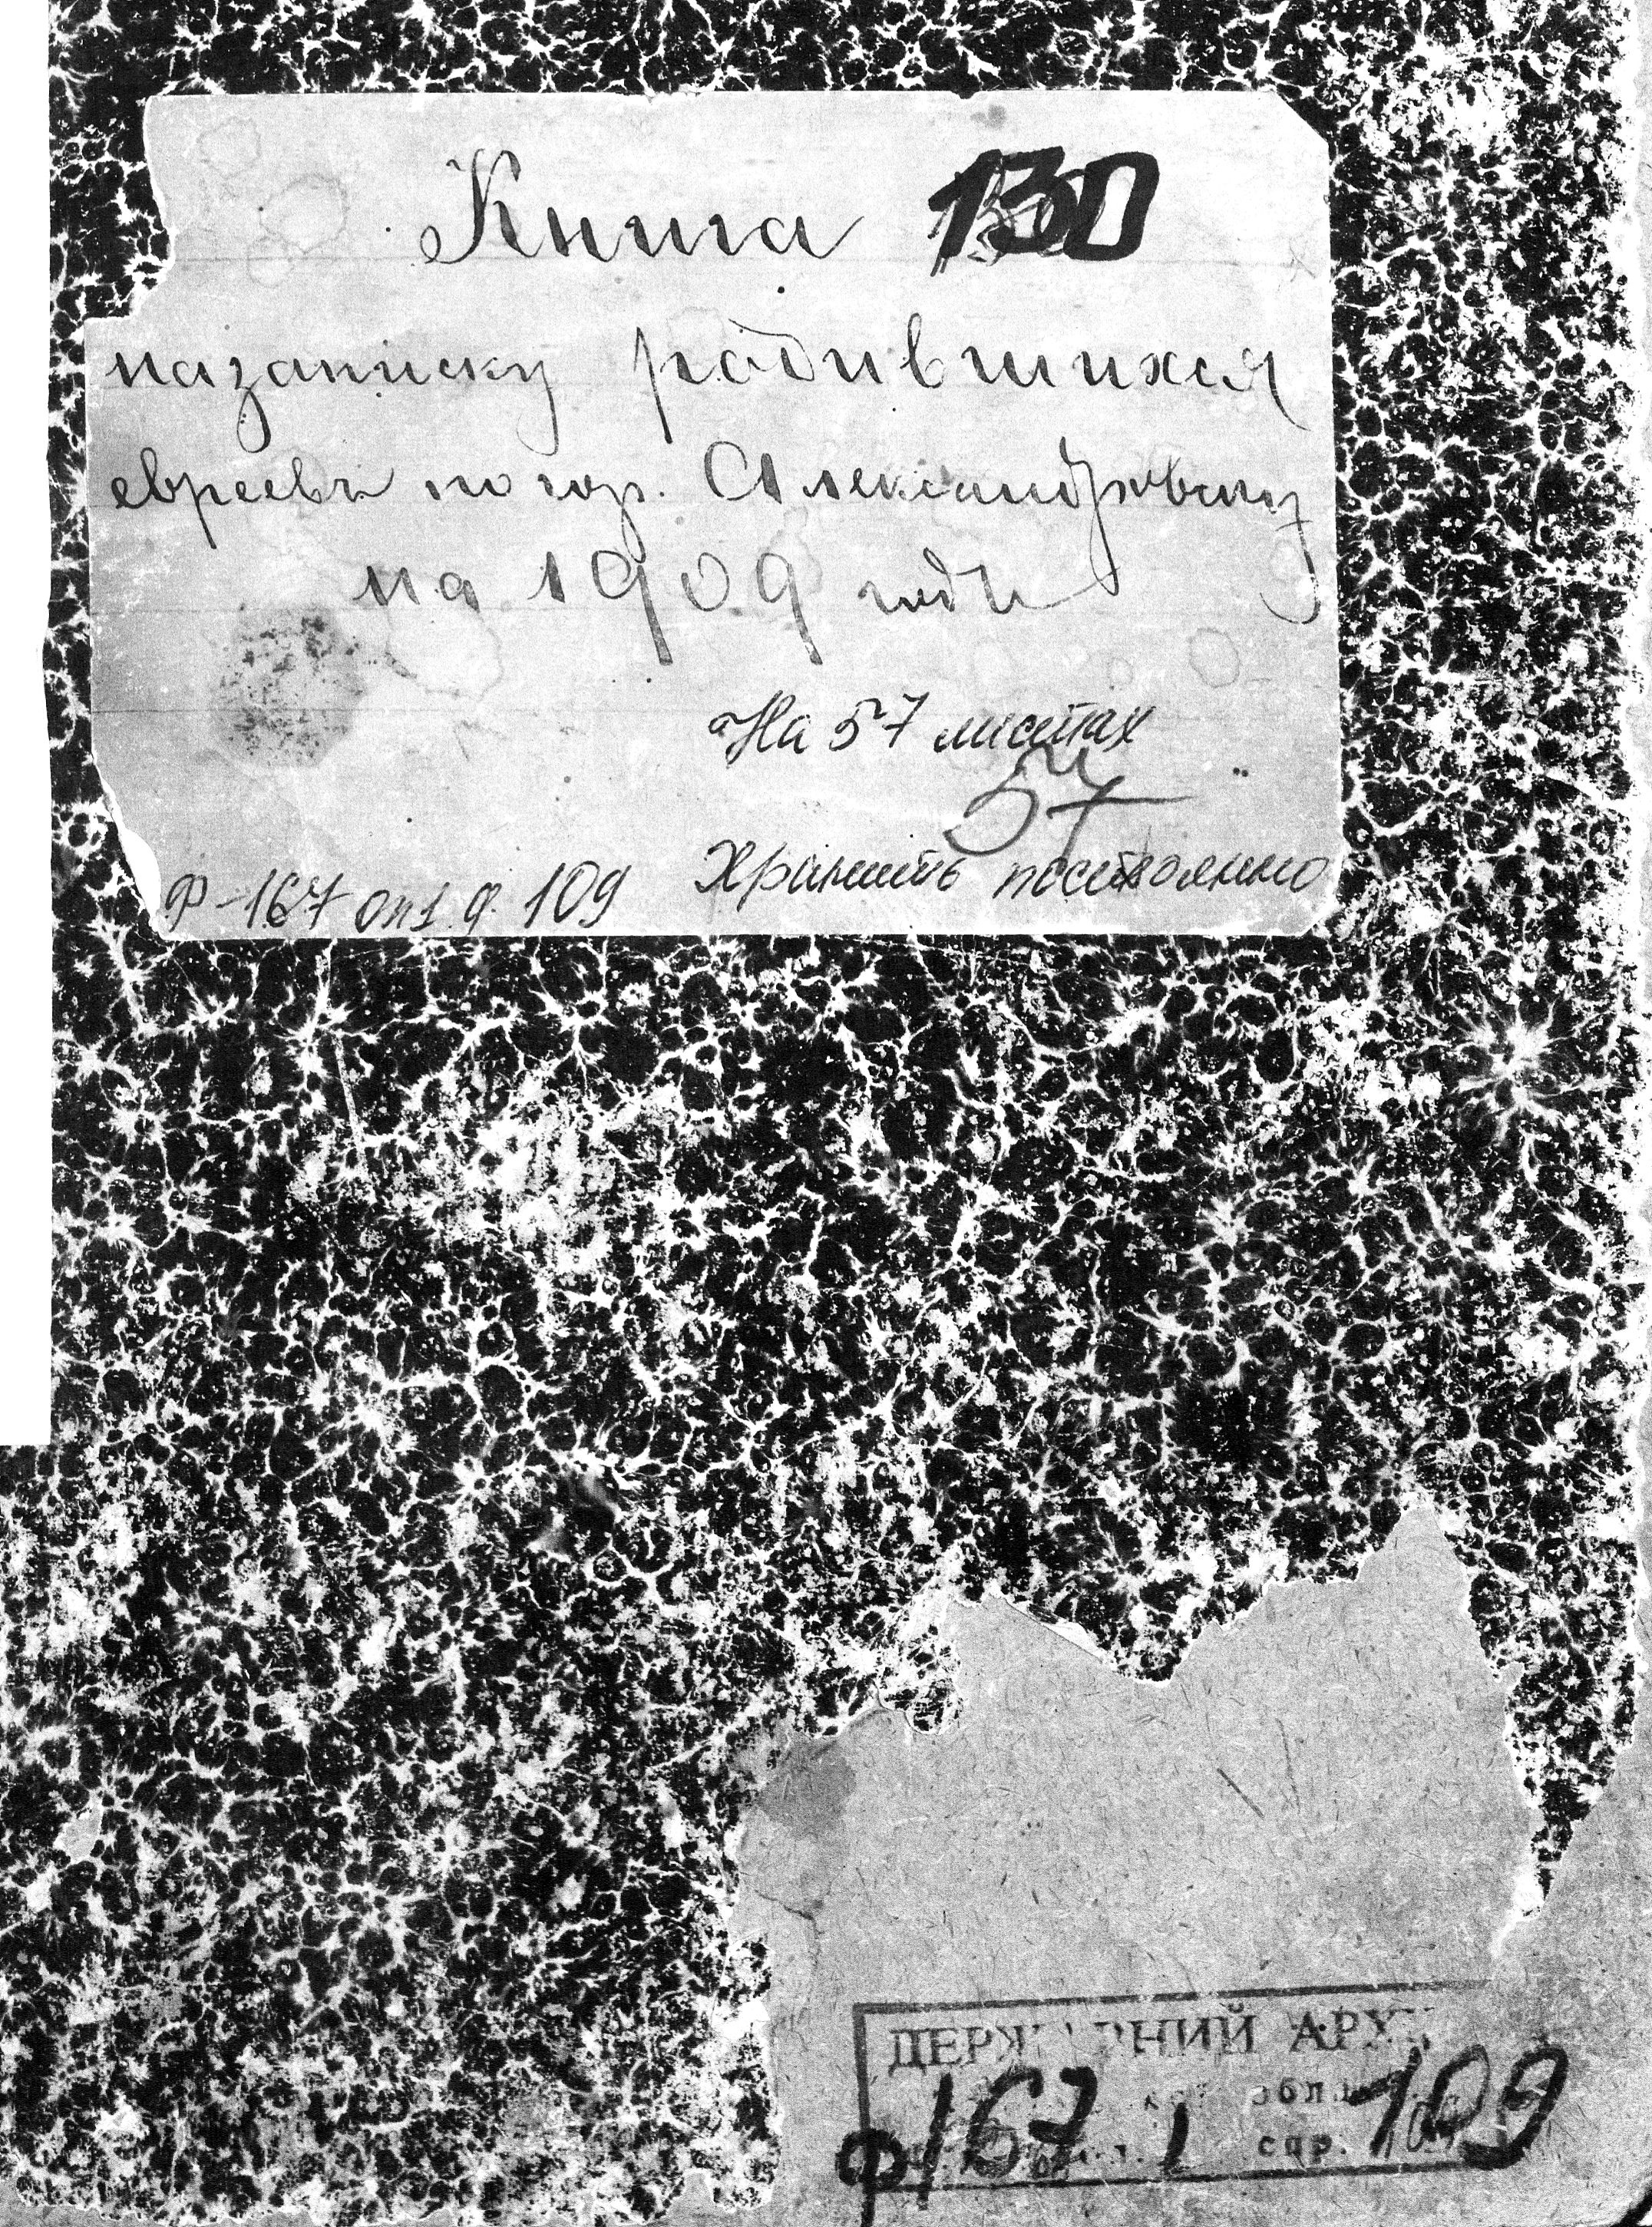 Книга 130
на записку родившихся
евреевъ по гор. Александровску
на 1909 годъ
На 57 листах
57
Хранить постоянно
Ф-167 оп1 д. 109
ДЕРЖ РНИЙ АРХ
обл
ф 167 1 спр. 109